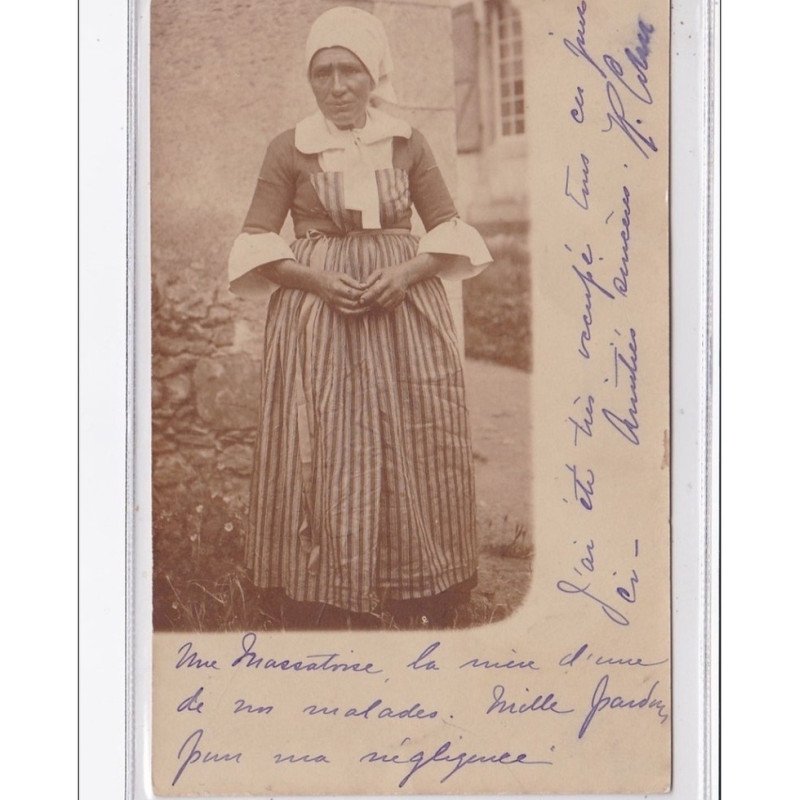 Une Massatoise, la mère d'une
de nos malades. Mille pardons
pour ma négligence.
J'ai été très occupé tous ces jours
ci - Amitiés sincères.